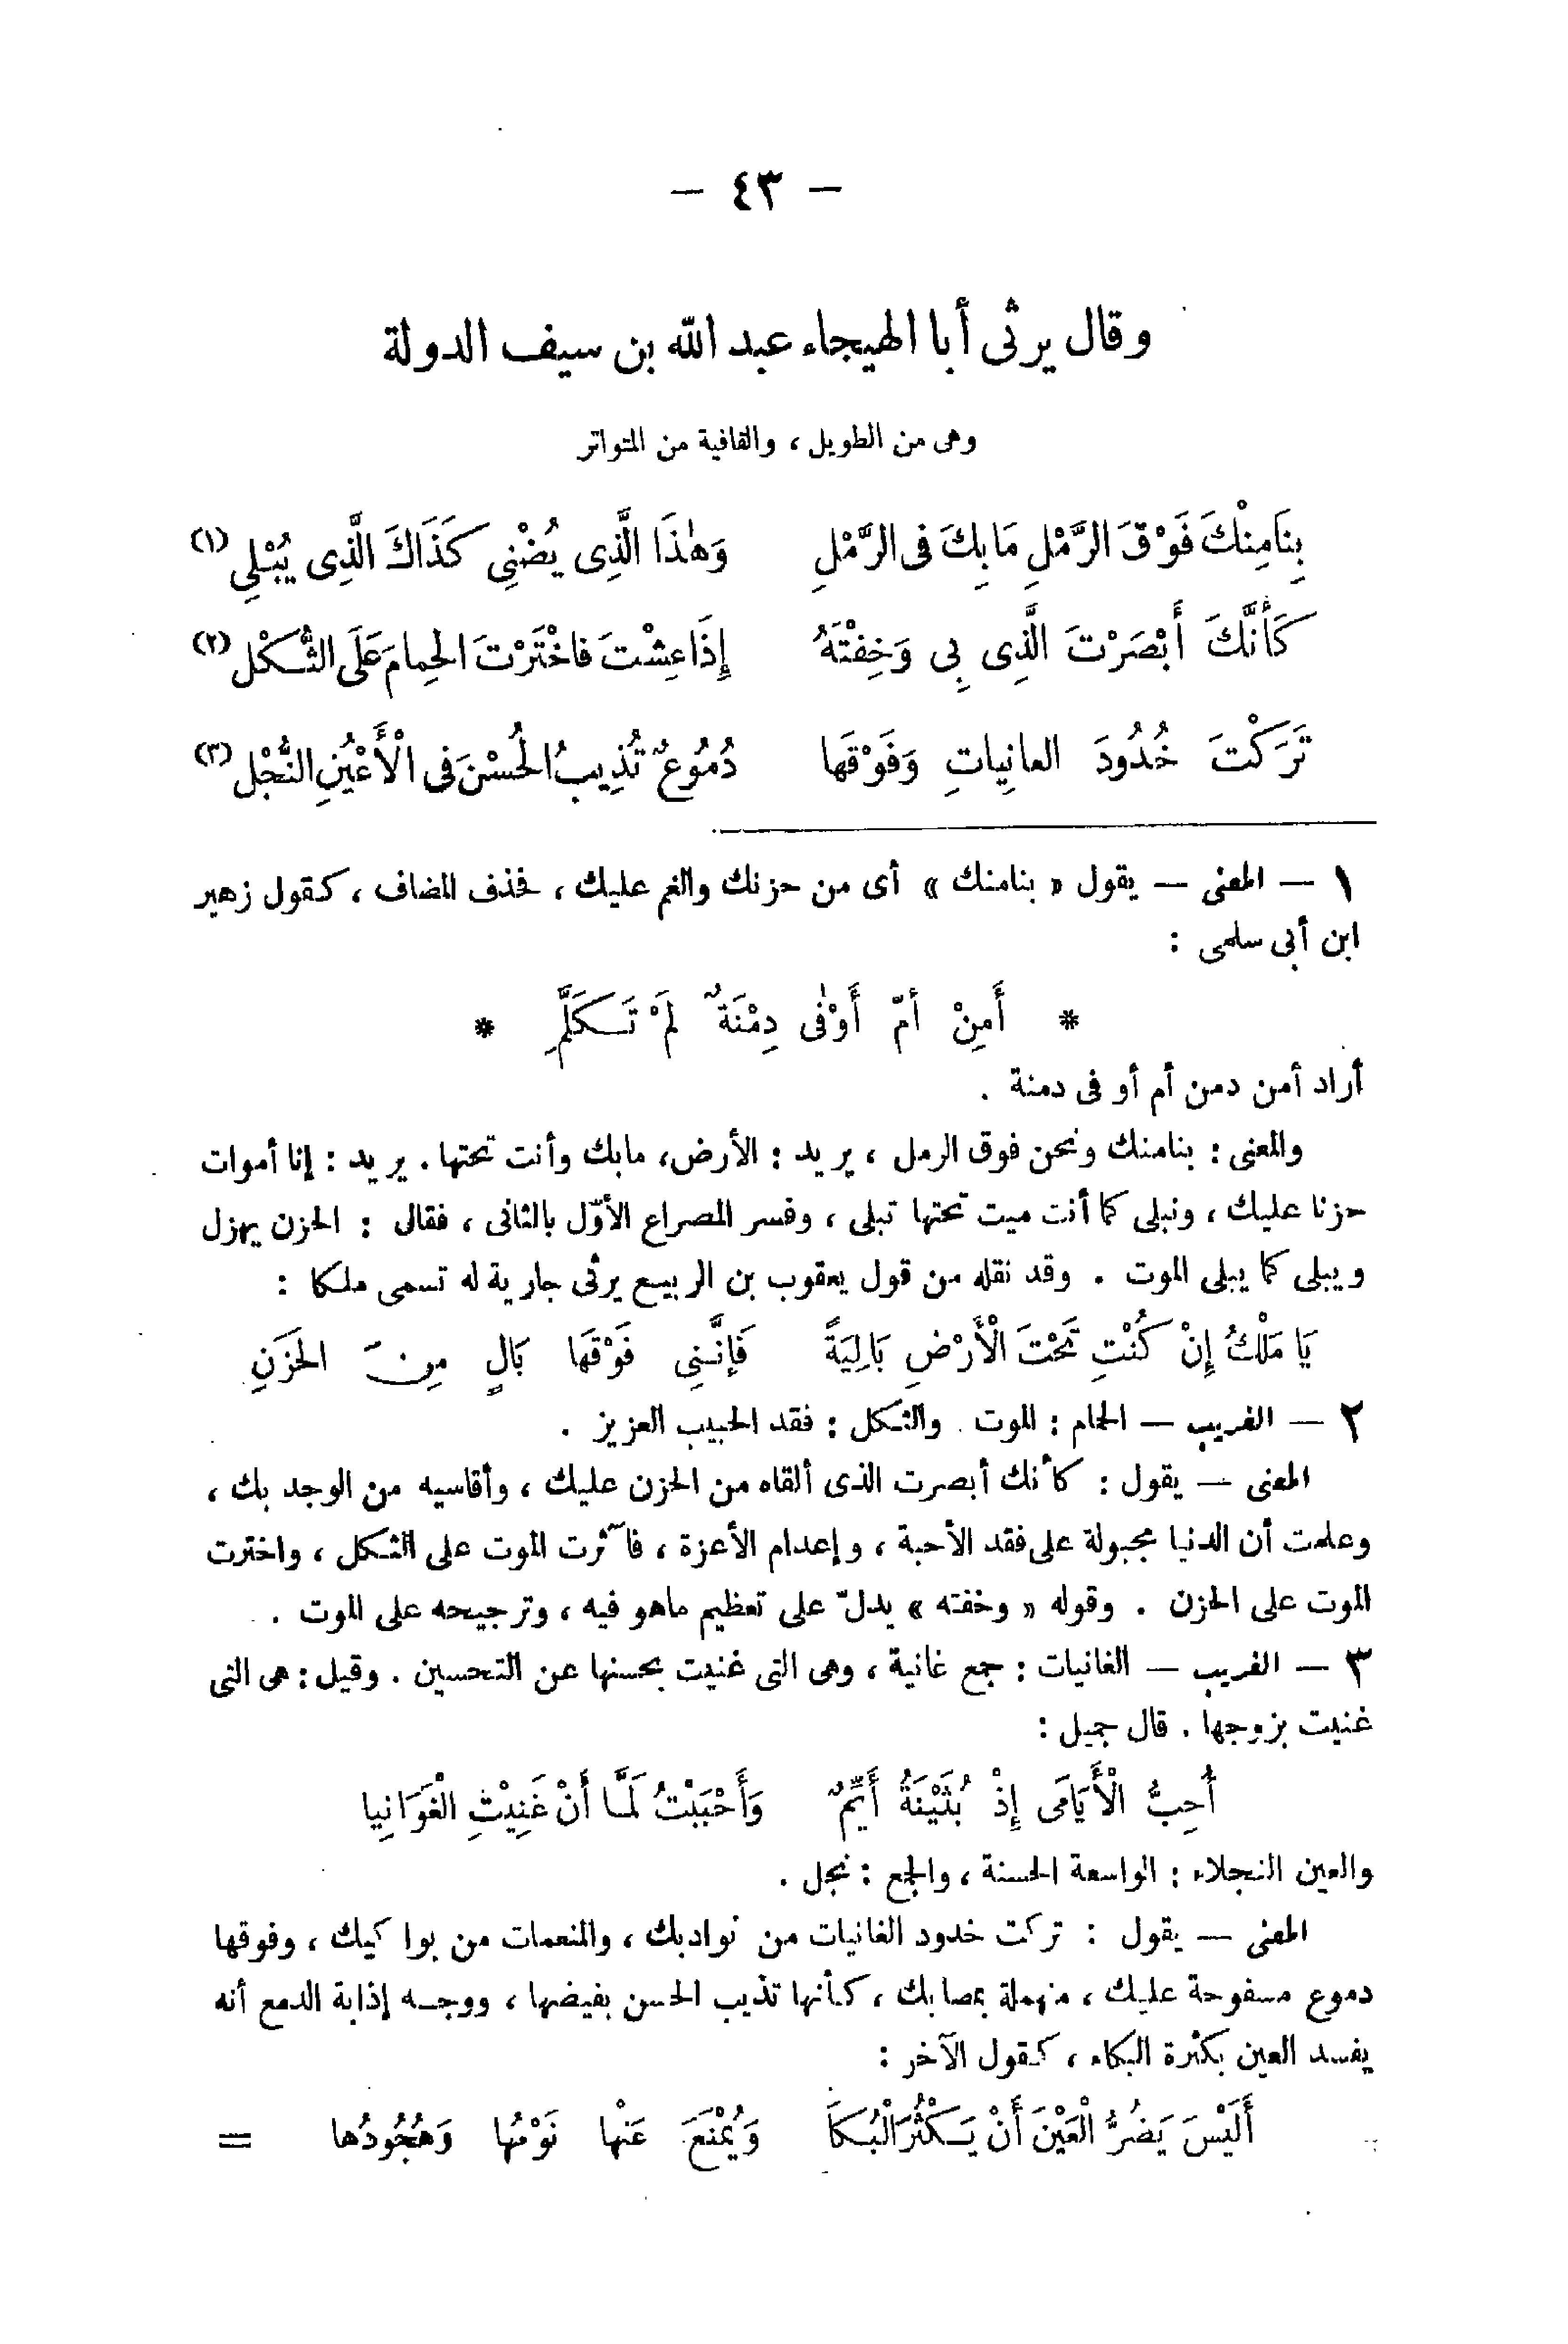 — ٤٣ —
وقال يرثى أبا الهيجاء عبد الله بن سيف الدولة
وهى من الطويل ، والقافية من المتواتر
بِنَامِنْكَ فَوْقَ الرَّمْلِ مَابِكَ فى الرَّمْلِ وَهٰذَا الَّذِى يُضْنِى كَذَاكَ الَّذِى يُبْلِى (١)
كَأَنَّكَ أَبْصَرْتَ الَّذِى بِى وَخِفْتَهُ إِذَا عِشْتَ فاخْتَرْتَ الحِمامَ عَلَى الثُّكْلِ (٢)
تَرَكْتَ خُدُودَ الغانِياتِ وَفَوْقَها دُمُوعٌ تُذِيبُ الحُسْنَ فى الْأَعْيُنِ النُّجْلِ (٣)
١ — المعنى — يقول « بنامنك » أى من حزنك والغم عليك ، فحذف المضاف ، كقول زهير
ابن أبى سلمى :
* أَمِنْ أمّ أَوْفٰى دِمْنَةٌ لَمْ تَكَلَّمِ *
أراد أمن دمن أم أوفى دمنة .
والمعنى : بنامنك ونحن فوق الرمل ، يريد : الأرض، مابك وأنت تحتها . يريد : إنا أموات
حزنا عليك ، ونبلى كما أنت ميت تحتها تبلى ، وفسر المصراع الأوّل بالثانى ، فقال : الحزن يهزل
ويبلى كما يبلى الموت . وقد نقله من قول يعقوب بن الربيع يرثى جارية له تسمى ملكا :
يَا مَلْكُ إِنْ كُنْتِ تَحْتَ الْأَرْضِ بَالِيَةً فَإِنَّنِى فَوْقَهَا بَالٍ مِنَ الحَزَنِ
٢ — الغريب — الحمام : الموت . والثكل : فقد الحبيب العزيز .
المعنى — يقول : كأنك أبصرت الذى ألقاه من الحزن عليك ، وأقاسيه من الوجد بك ،
وعلمت أن الدنيا مجبولة على فقد الأحبة ، وإعدام الأعزة ، فآثرت الموت على الثكل ، واخترت
الموت على الحزن . وقوله « وخفته » يدلّ على تعظيم ماهو فيه ، وترجيحه على الموت .
٣ — الغريب — الغانيات : جمع غانية ، وهى التى غنيت بحسنها عن التحسين . وقيل : هى التى
غنيت بزوجها . قال جميل :
أُحِبُّ الْأَيَامَى إِذْ بُثَيْنَةُ أَيِّمٌ وَأَحْبَبْتُ لَمَّا أَنْ غَنِيْتِ الْغَوَانِيا
والعين النجلاء : الواسعة الحسنة ، والجمع : نجل .
المعنى — يقول : تركت خدود الغانيات من نوادبك ، والمنعمات من بواكيك ، وفوقها
دموع مسفوحة عليك ، منهملة بمصابك ، كأنها تذيب الحسن بفيضها ، ووجه إذابة الدمع أنه
يفسد العين بكثرة البكاء ، كقول الآخر :
أَلَيْسَ يَضُرُّ الْعَيْنَ أَنْ يَكْثُرَ الْبُكَا وَيُمْنَعَ عَنْها نَوْمُها وَهُجُودُها =